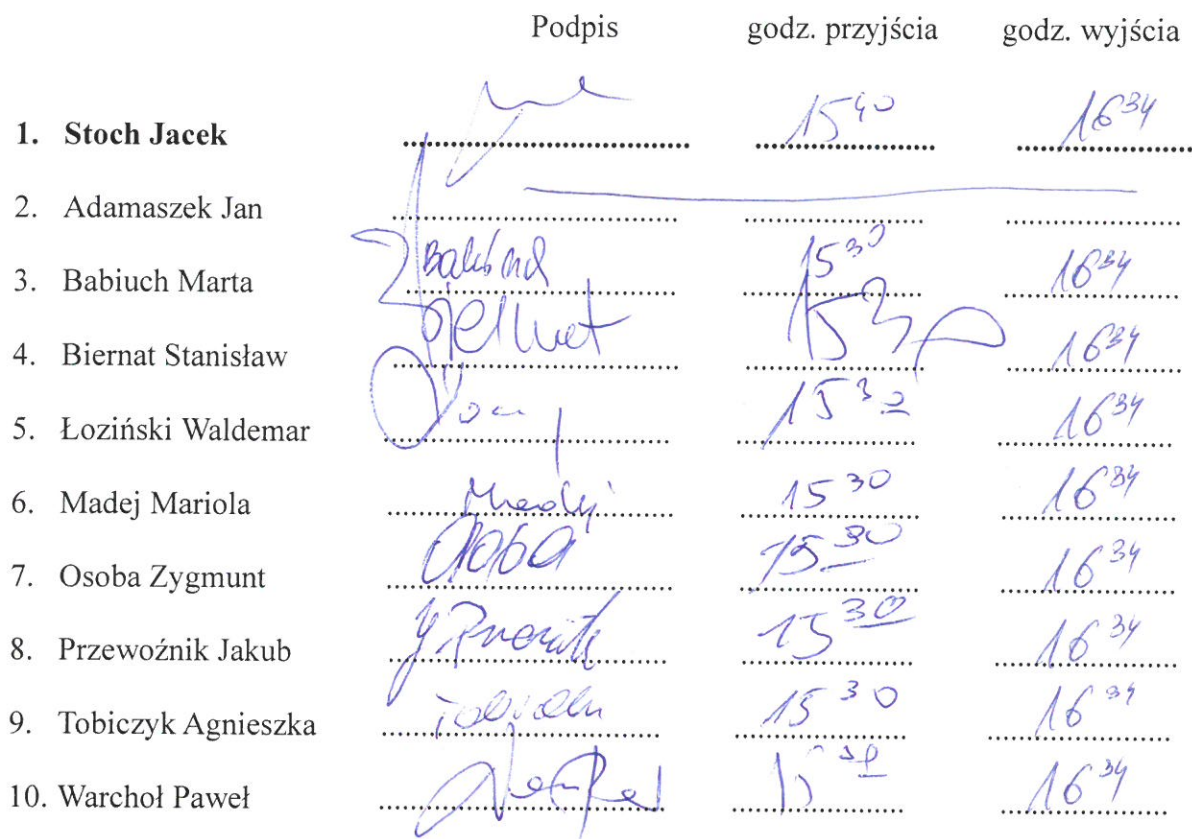 Podpis godz. przyjścia godz. wyjścia
1. Stoch Jacek 15⁴⁰ 16³⁴
2. Adamaszek Jan
3. Babiuch Marta 15³⁰ 16³⁴
4. Biernat Stanisław 15³⁰ 16³⁴
5. Łoziński Waldemar 15³⁰ 16³⁴
6. Madej Mariola Madej 15³⁰ 16³⁴
7. Osoba Zygmunt Osoba 15³⁰ 16³⁴
8. Przewoźnik Jakub 15³⁰ 16³⁴
9. Tobiczyk Agnieszka 15³⁰ 16³⁴
10. Warchoł Paweł 15³⁰ 16³⁴